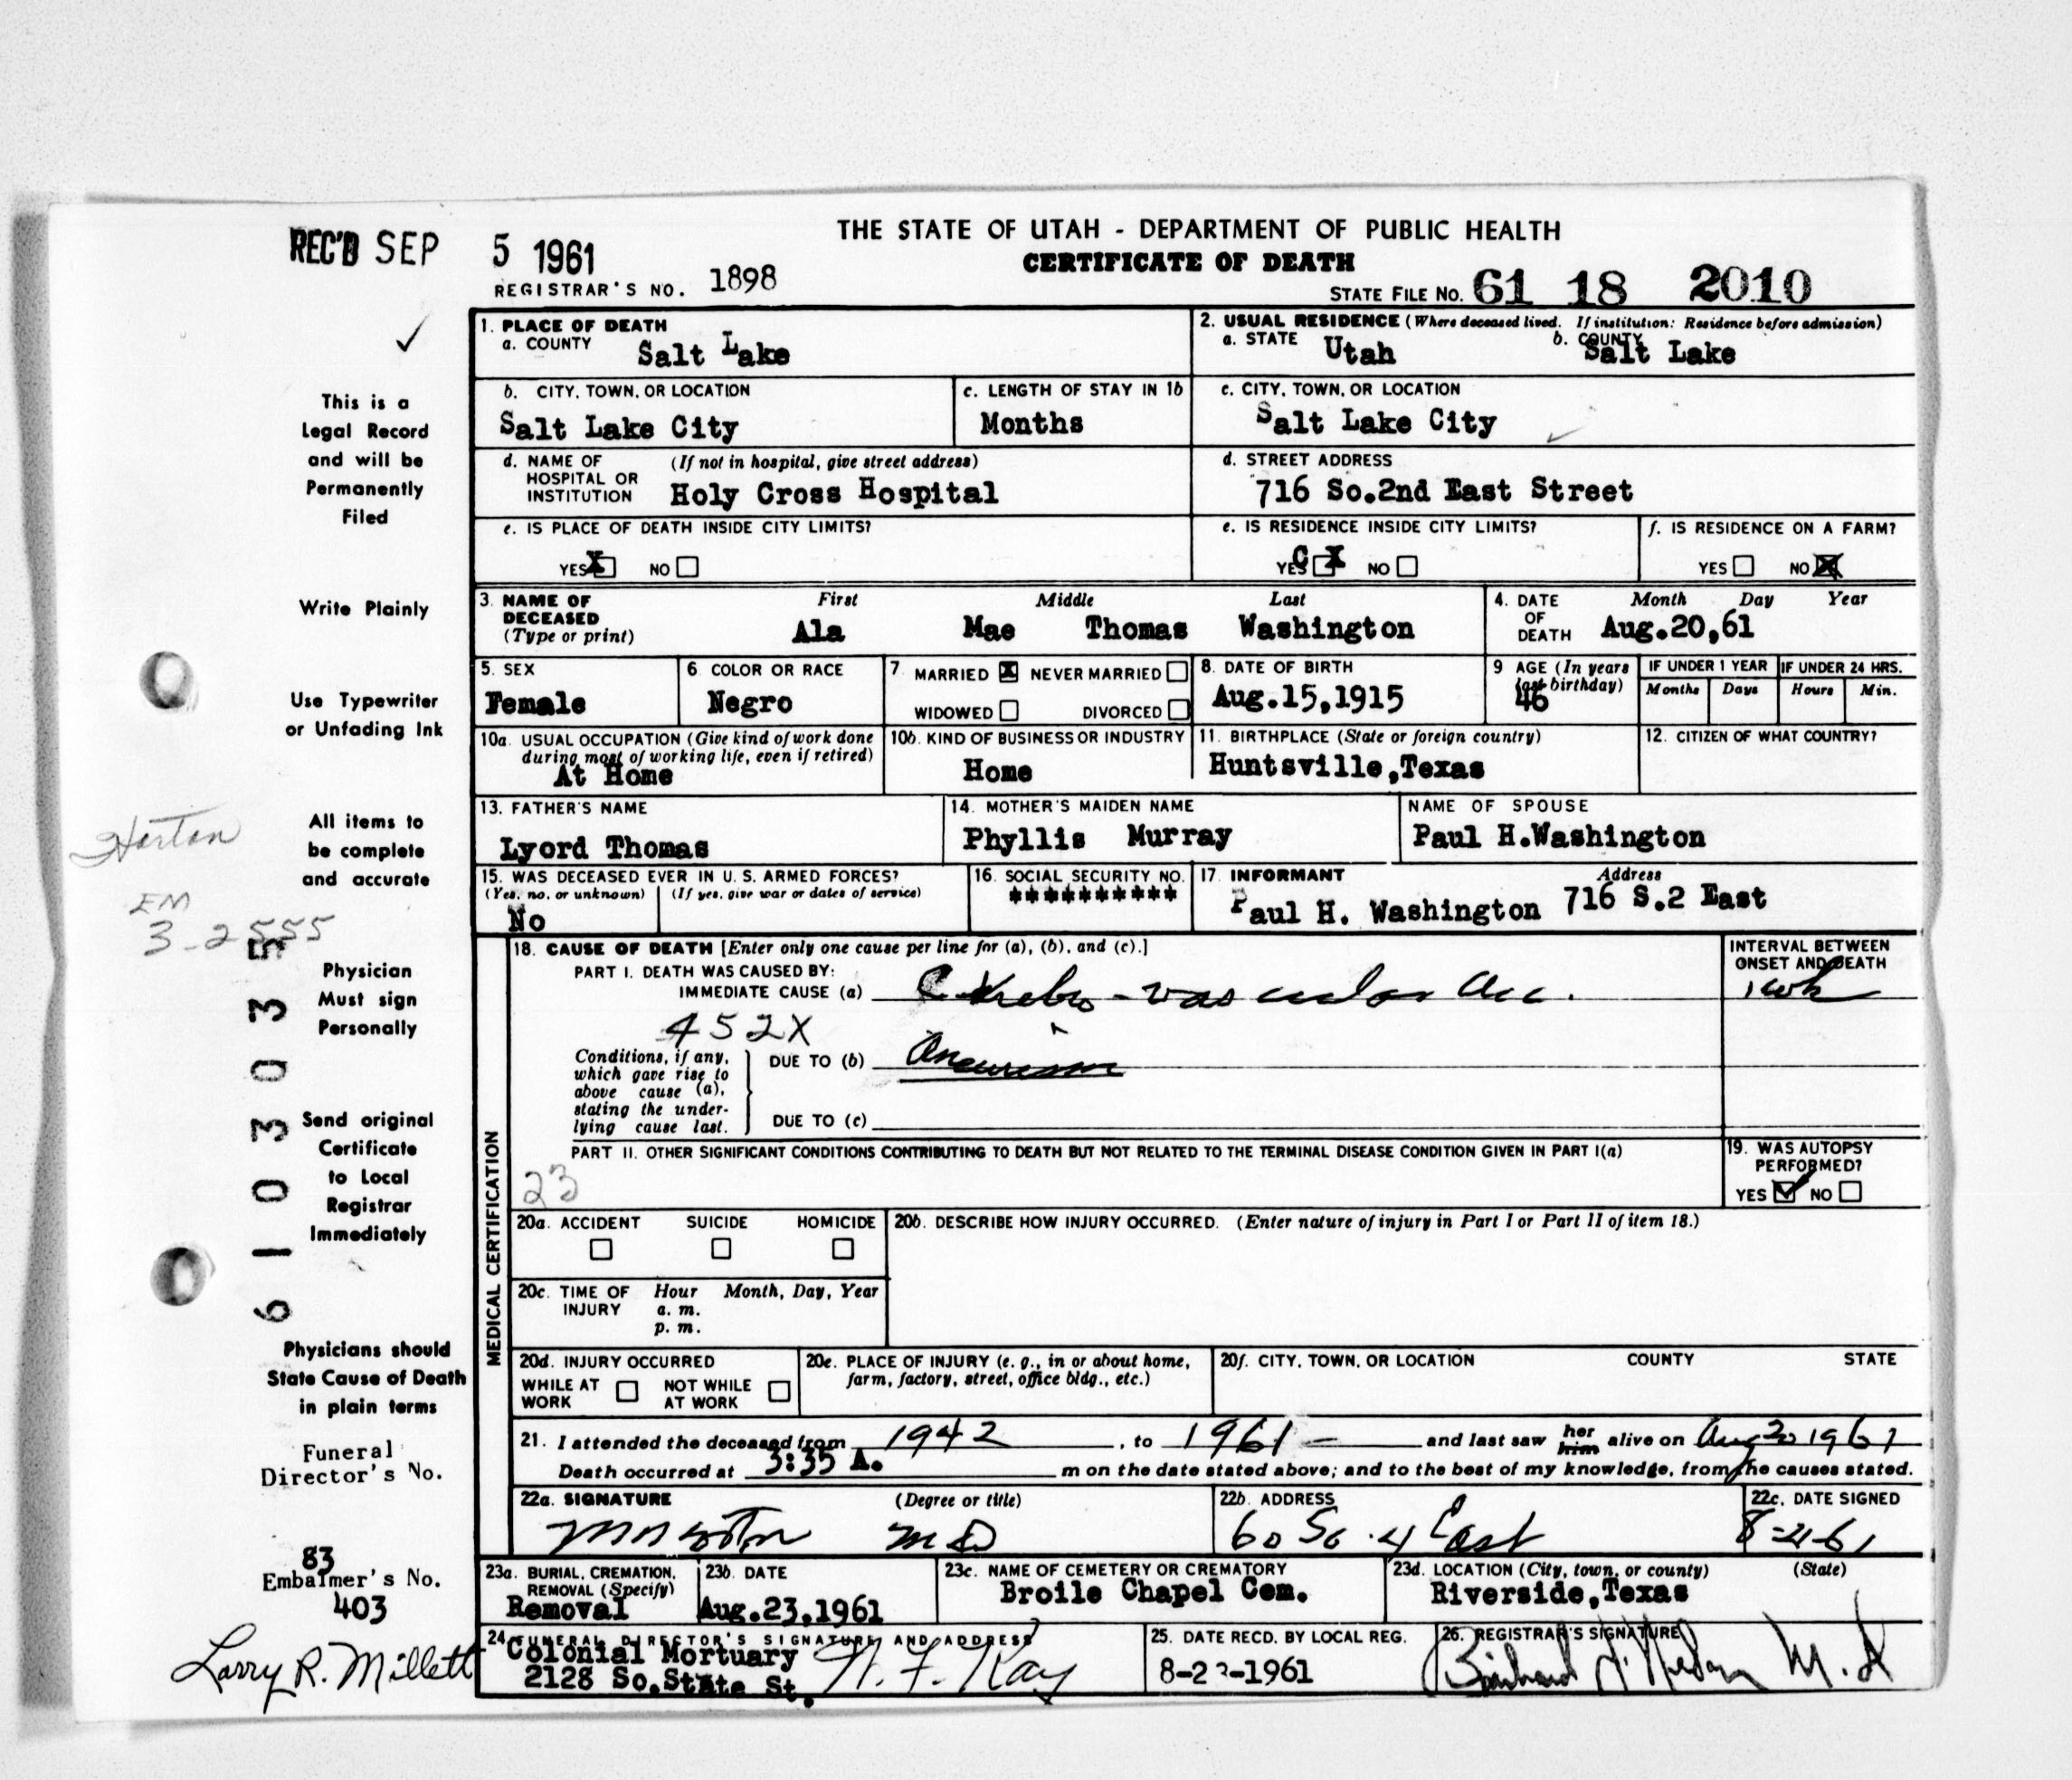 REC'D SEP 5 1961
THE STATE OF UTAH - DEPARTMENT OF PUBLIC HEALTH
CERTIFICATE OF DEATH
REGISTRAR'S NO. 1898
STATE FILE No. 61 18 2010
1. PLACE OF DEATH
a. COUNTY Salt Lake
2. USUAL RESIDENCE (Where deceased lived. If institution: Residence before admission)
a. STATE Utah b. COUNTY Salt Lake
b. CITY, TOWN, OR LOCATION
Salt Lake City
c. LENGTH OF STAY IN 1b
Months
c. CITY, TOWN, OR LOCATION
Salt Lake City
d. NAME OF HOSPITAL OR INSTITUTION (If not in hospital, give street address)
Holy Cross Hospital
d. STREET ADDRESS
716 So.2nd East Street
e. IS PLACE OF DEATH INSIDE CITY LIMITS?
YES X NO
e. IS RESIDENCE INSIDE CITY LIMITS?
YES X NO
f. IS RESIDENCE ON A FARM?
YES NO X
3. NAME OF DECEASED (Type or print) First Middle Last
Ala Mae Thomas Washington
4. DATE OF DEATH Month Day Year
Aug.20,61
5. SEX
Female
6. COLOR OR RACE
Negro
7. MARRIED X NEVER MARRIED
WIDOWED DIVORCED
8. DATE OF BIRTH
Aug.15,1915
9. AGE (In years last birthday)
46
IF UNDER 1 YEAR
Months Days
IF UNDER 24 HRS.
Hours Min.
10a. USUAL OCCUPATION (Give kind of work done during most of working life, even if retired)
At Home
10b. KIND OF BUSINESS OR INDUSTRY
Home
11. BIRTHPLACE (State or foreign country)
Huntsville,Texas
12. CITIZEN OF WHAT COUNTRY?
13. FATHER'S NAME
Lyord Thomas
14. MOTHER'S MAIDEN NAME
Phyllis Murray
NAME OF SPOUSE
Paul H.Washington
15. WAS DECEASED EVER IN U. S. ARMED FORCES?
(Yes, no, or unknown) (If yes, give war or dates of service)
No
16. SOCIAL SECURITY NO.
**********
17. INFORMANT Address
Paul H. Washington 716 S.2 East
18. CAUSE OF DEATH [Enter only one cause per line for (a), (b), and (c).]
PART I. DEATH WAS CAUSED BY:
IMMEDIATE CAUSE (a) vascular Acc.
INTERVAL BETWEEN ONSET AND DEATH
1 wk
452X
Conditions, if any, which gave rise to above cause (a), stating the underlying cause last.
DUE TO (b) Aneurism
DUE TO (c)
PART II. OTHER SIGNIFICANT CONDITIONS CONTRIBUTING TO DEATH BUT NOT RELATED TO THE TERMINAL DISEASE CONDITION GIVEN IN PART I(a)
23
19. WAS AUTOPSY PERFORMED?
YES NO
MEDICAL CERTIFICATION
20a. ACCIDENT SUICIDE HOMICIDE
20b. DESCRIBE HOW INJURY OCCURRED. (Enter nature of injury in Part I or Part II of item 18.)
20c. TIME OF INJURY Hour Month, Day, Year
a. m.
p. m.
20d. INJURY OCCURRED
WHILE AT WORK NOT WHILE AT WORK
20e. PLACE OF INJURY (e. g., in or about home, farm, factory, street, office bldg., etc.)
20f. CITY, TOWN, OR LOCATION COUNTY STATE
21. I attended the deceased from 1942, to 1961 and last saw her him alive on Aug 20 1961
Death occurred at 3:35 A. m on the date stated above; and to the best of my knowledge, from the causes stated.
22a. SIGNATURE (Degree or title)
MD
22b. ADDRESS
60 So. 4 East
22c. DATE SIGNED
23a. BURIAL, CREMATION, REMOVAL (Specify)
Removal
23b. DATE
Aug.23,1961
23c. NAME OF CEMETERY OR CREMATORY
Broile Chapel Cem.
23d. LOCATION (City, town, or county) (State)
Riverside,Texas
24. FUNERAL DIRECTOR'S SIGNATURE AND ADDRESS
Colonial Mortuary
2128 So.State St.
25. DATE RECD. BY LOCAL REG.
26. REGISTRAR'S SIGNATURE
M.D
This is a
Legal Record
and will be
Permanently
Filed
Write Plainly
Use Typewriter
or Unfading Ink
All items to
be complete
and accurate
Horton
EM
3-2555
Physician
Must sign
Personally
Send original
Certificate
to Local
Registrar
Immediately
Physicians should
State Cause of Death
in plain terms
Funeral
Director's No.
83
Embalmer's No.
403
Larry R. Millett
61030335